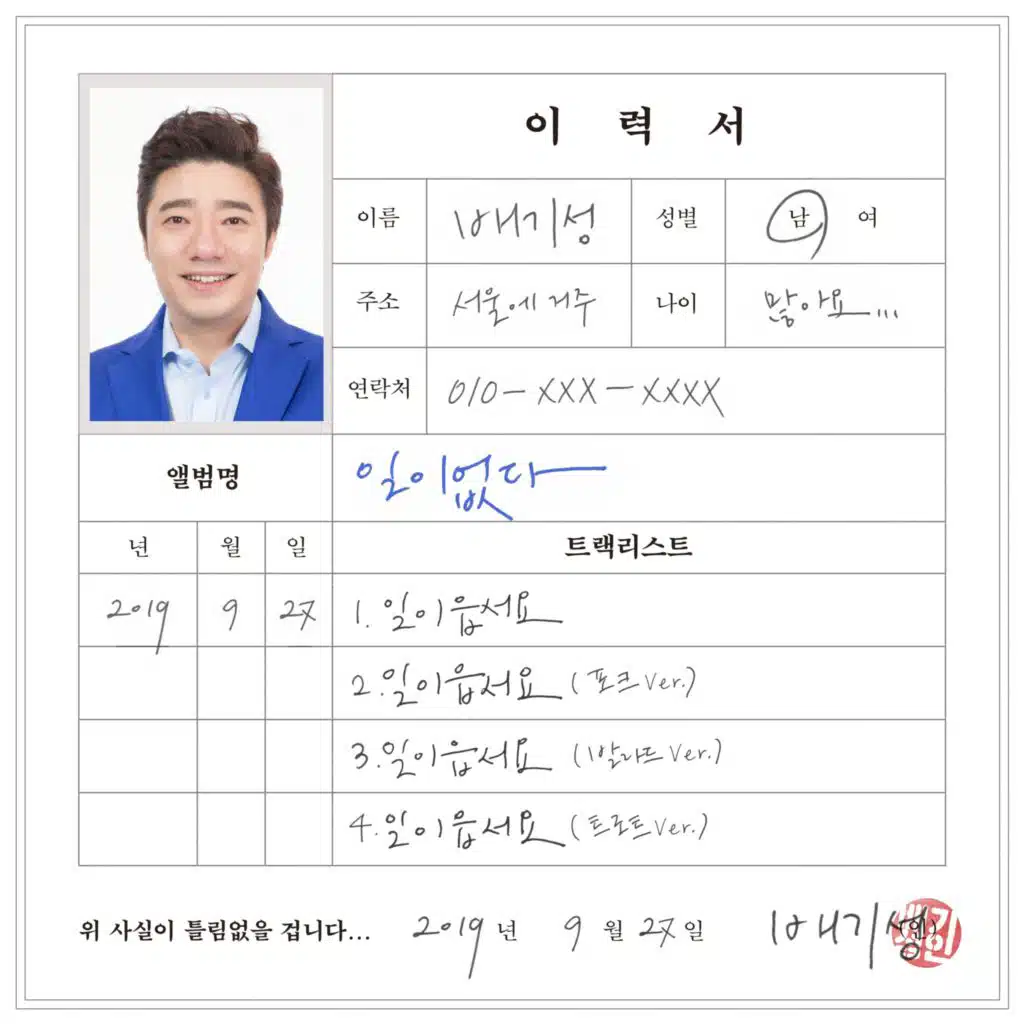 이 력 서
이름 배기성 성별 남 여
주소 서울에 거주 나이 많아요...
연락처 010-XXX-XXXX
앨범명 일이없다
년 월 일 트랙리스트
2019 9 27 1. 일이읎서요
2. 일이읎서요 (포크 Ver.)
3. 일이읎서요 (발라드 Ver.)
4. 일이읎서요 (트로트 Ver.)
위 사실이 틀림없을 겁니다... 2019 년 9 월 27 일 배기성 (인)